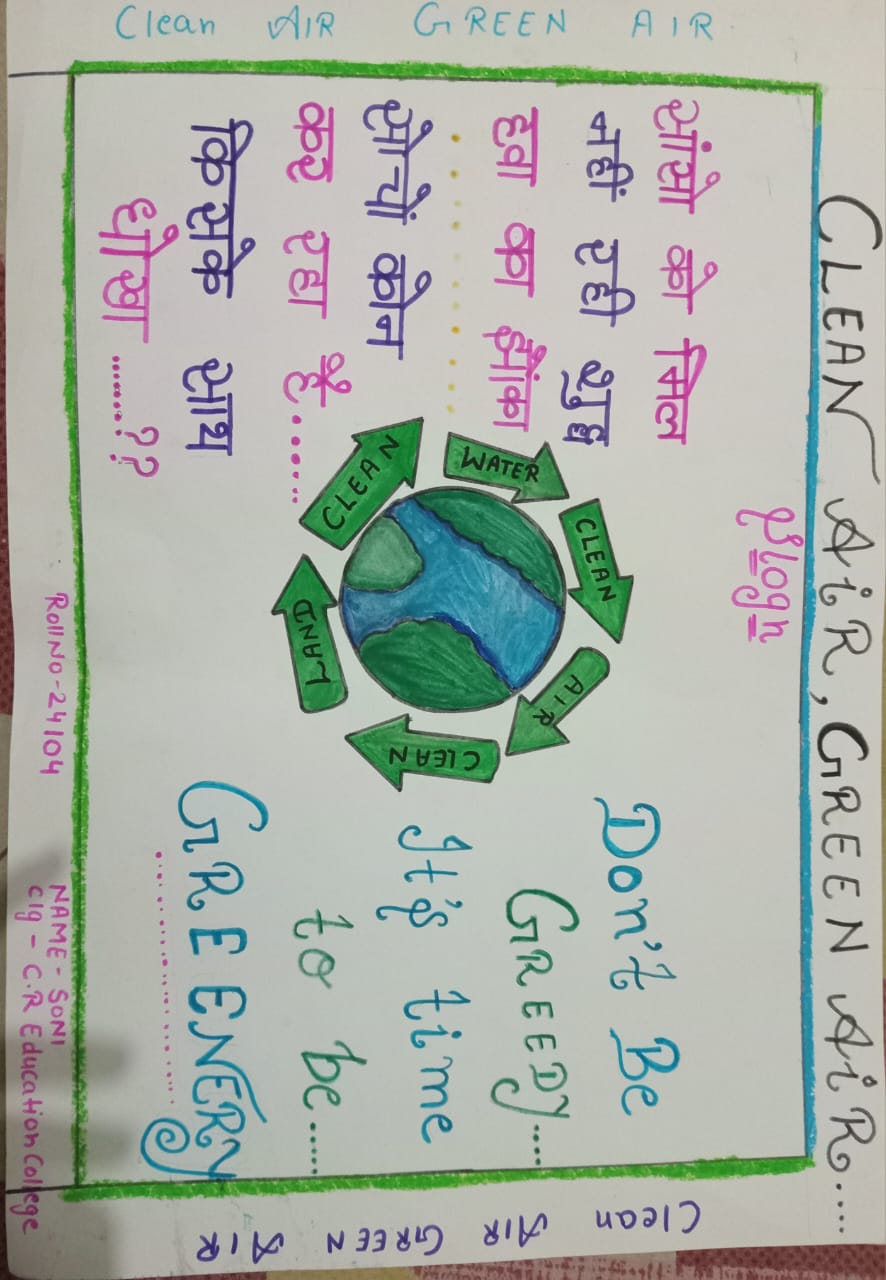 CLEAN AiR, GREEN AiR....
Slogn
सांसो को मिल
नहीं रही शुद्ध
हवा का झौंका
सोचों कौन
कर रहा है......
किसके साथ
धोखा .......??
WATER
CLEAN
AIR
CLEAN
LAND
CLEAN
Don't Be
GREEDY....
It's time
to be.....
GREENERY
Roll No - 24104
NAME - SONI
Clg - C.R Education College
Clean AIR GREEN AIR.
Clean AIR GREEN AIR